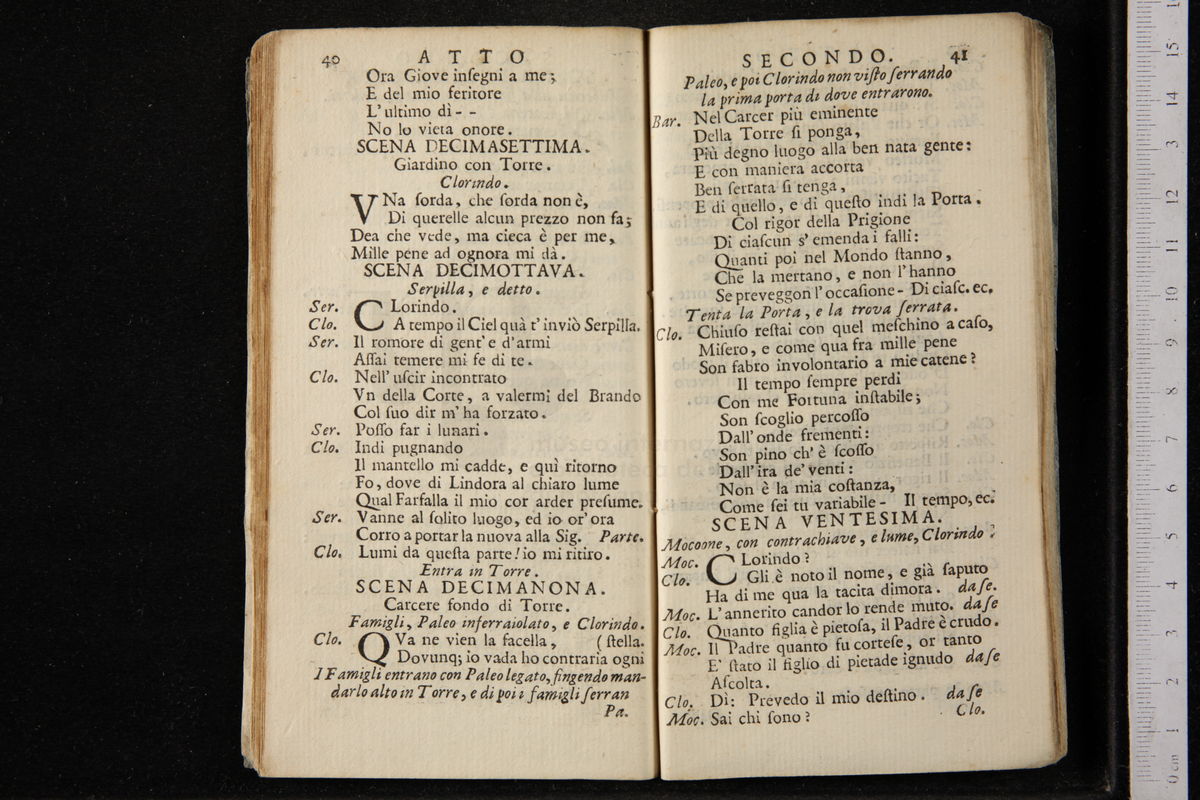 40 ATTO
Ora Giove inſegni a me;
E del mio feritore
L'ultimo dì- -
No lo vieta onore.
SCENA DECIMASETTIMA.
Giardino con Torre.
Clorindo.
VNa ſorda, che ſorda non è,
Di querelle alcun prezzo non fa;
Dea che vede, ma cieca è per me,
Mille pene ad ognora mi dà.
SCENA DECIMOTTAVA.
Serpilla, e detto.
Ser. CLorindo.
Clo. A tempo il Ciel quà t'inviò Serpilla.
Ser. Il romore di gent'e d'armi
Aſſai temere mi fe di te.
Clo. Nell'uſcir incontrato
Vn della Corte, a valermi del Brando
Col ſuo dir m'ha forzato.
Ser. Poſſo far i lunari.
Clo. Indi pugnando
Il mantello mi cadde, e quì ritorno
Fo, dove di Lindora al chiaro lume
Qual Farfalla il mio cor arder preſume.
Ser. Vanne al ſolito luogo, ed io or'ora
Corro a portar la nuova alla Sig. Parte.
Clo. Lumi da queſta parte! io mi ritiro.
Entra in Torre.
SCENA DECIMANONA.
Carcere fondo di Torre.
Famigli, Paleo inferraiolato, e Clorindo.
Clo. QVa ne vien la facella, (ſtella.
Dovunq; io vada ho contraria ogni
I Famigli entrano con Paleo legato, fingendo man-
darlo alto in Torre, e di poi i famigli ſerran
Pa.
SECONDO. 41
Paleo, e poi Clorindo non viſto ſerrando
la prima porta di dove entrarono.
Bar. Nel Carcer più eminente
Della Torre ſi ponga,
Più degno luogo alla ben nata gente:
E con maniera accorta
Ben ſerrata ſi tenga,
E di quello, e di queſto indi la Porta.
Col rigor della Prigione
Di ciaſcun s'emenda i falli:
Quanti poi nel Mondo ſtanno,
Che la mertano, e non l'hanno
Se preveggon l'occaſione- Di ciaſc. ec.
Tenta la Porta, e la trova ſerrata.
Clo. Chiuſo reſtai con quel meſchino a caſo,
Miſero, e come qua fra mille pene
Son fabro involontario a mie catene?
Il tempo ſempre perdi
Con me Fortuna inſtabile;
Son ſcoglio percoſſo
Dall'onde frementi:
Son pino ch'è ſcoſſo
Dall'ira de'venti:
Non è la mia coſtanza,
Come ſei tu variabile- Il tempo, ec.
SCENA VENTESIMA.
Mocoone, con contrachiave, e lume, Clorindo.
Moc. CLorindo?
Clo. Gli è noto il nome, e già ſaputo
Ha di me qua la tacita dimora. da ſe.
Moc. L'annerito candor lo rende muto. da ſe
Clo. Quanto figlia è pietoſa, il Padre è crudo.
Moc. Il Padre quanto fu corteſe, or tanto
E' ſtato il figlio di pietade ignudo da ſe
Aſcolta.
Clo. Dì: Prevedo il mio deſtino. da ſe
Moc. Sai chi ſono?
Clo.